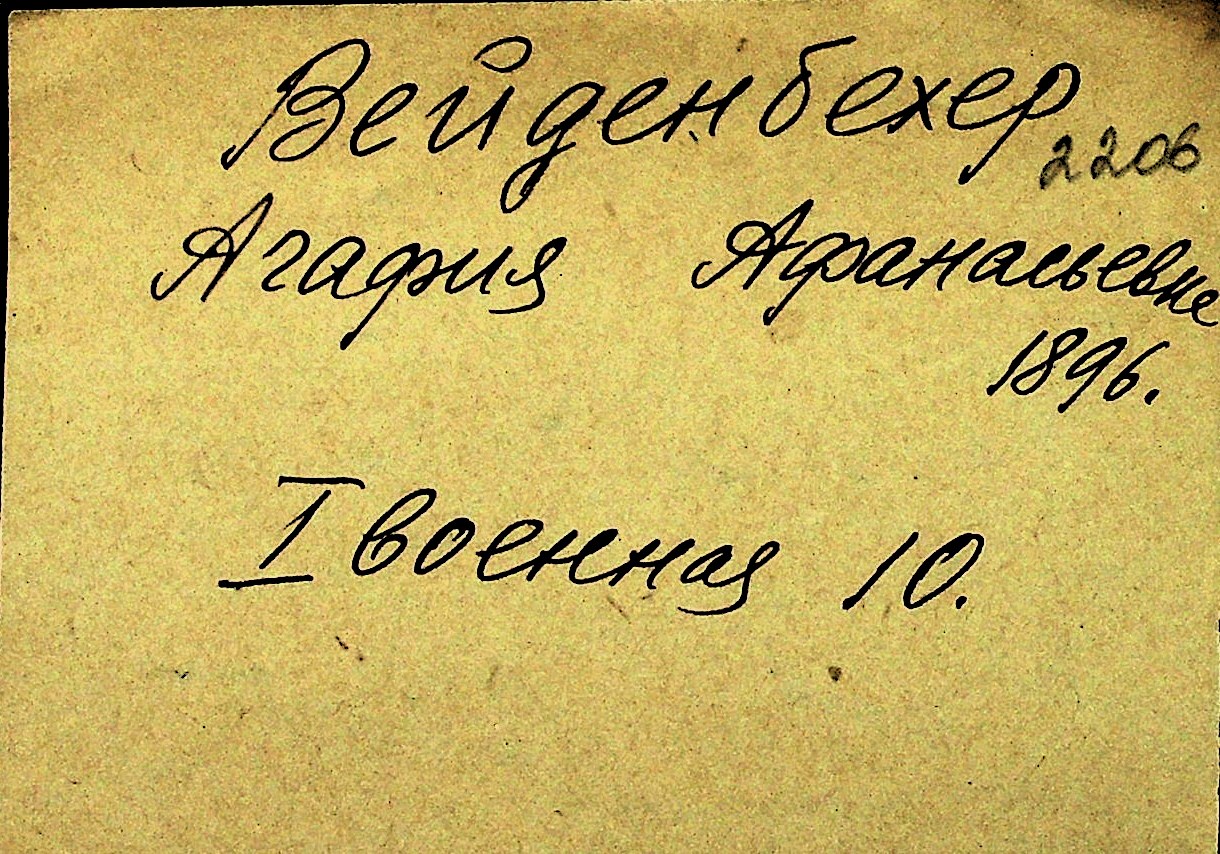 Вейденбехер
2206
Агафия Афанасьевна
1896.
I военная 10.